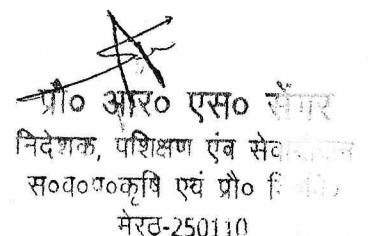 प्रौ० आर० एस० सेंगर
निदेशक, पशिक्षण एंव
स०व०प०कृषि एवं प्रौ०
मेरठ-250110